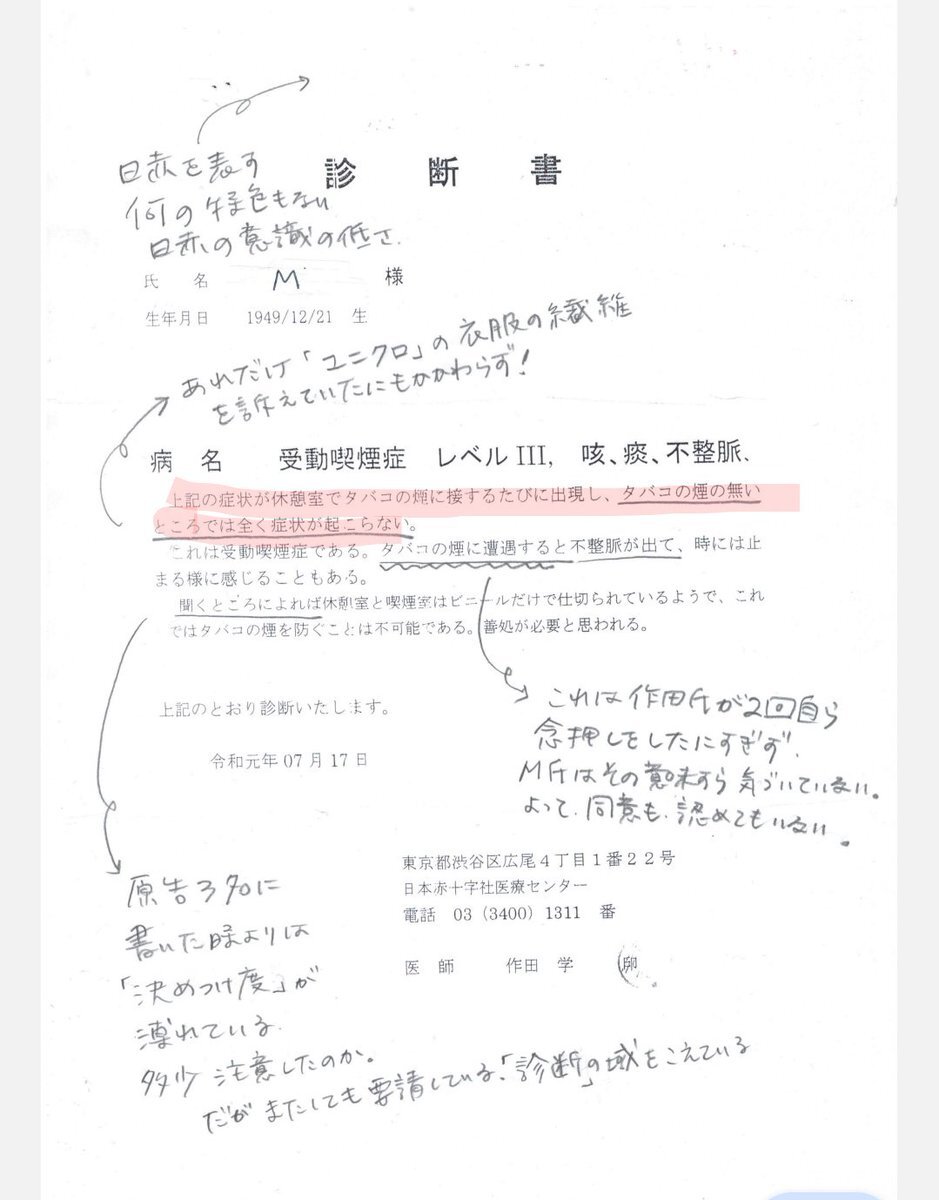 日赤を表す
何の特色もない
日赤の意識の低さ.
診断書
氏名 M 様
生年月日 1949/12/21 生
あれだけ「ユニクロ」の衣服の繊維
を訴えていたにもかかわらず!
病名 受動喫煙症 レベルIII, 咳、痰、不整脈、
上記の症状が休憩室でタバコの煙に接するたびに出現し、タバコの煙の無い
ところでは全く症状が起こらない。
これは受動喫煙症である。タバコの煙に遭遇すると不整脈が出て、時には止
まる様に感じることもある。
聞くところによれば休憩室と喫煙室はビニールだけで仕切られているようで、これ
ではタバコの煙を防ぐことは不可能である。善処が必要と思われる。
上記のとおり診断いたします。
令和元年07月17日
これは作田氏が2回自ら
念押しをしたにすぎず、
M氏はその意味すら気づいていない。
よって、同意も、認めてもいない。
東京都渋谷区広尾4丁目1番22号
日本赤十字社医療センター
電話 03(3400)1311 番
医師 作田 学
原告3名に
書いた時よりは
「決めつけ度」が
薄れている.
多少注意したのか。
だがまたしても要請している、「診断」の域をこえている